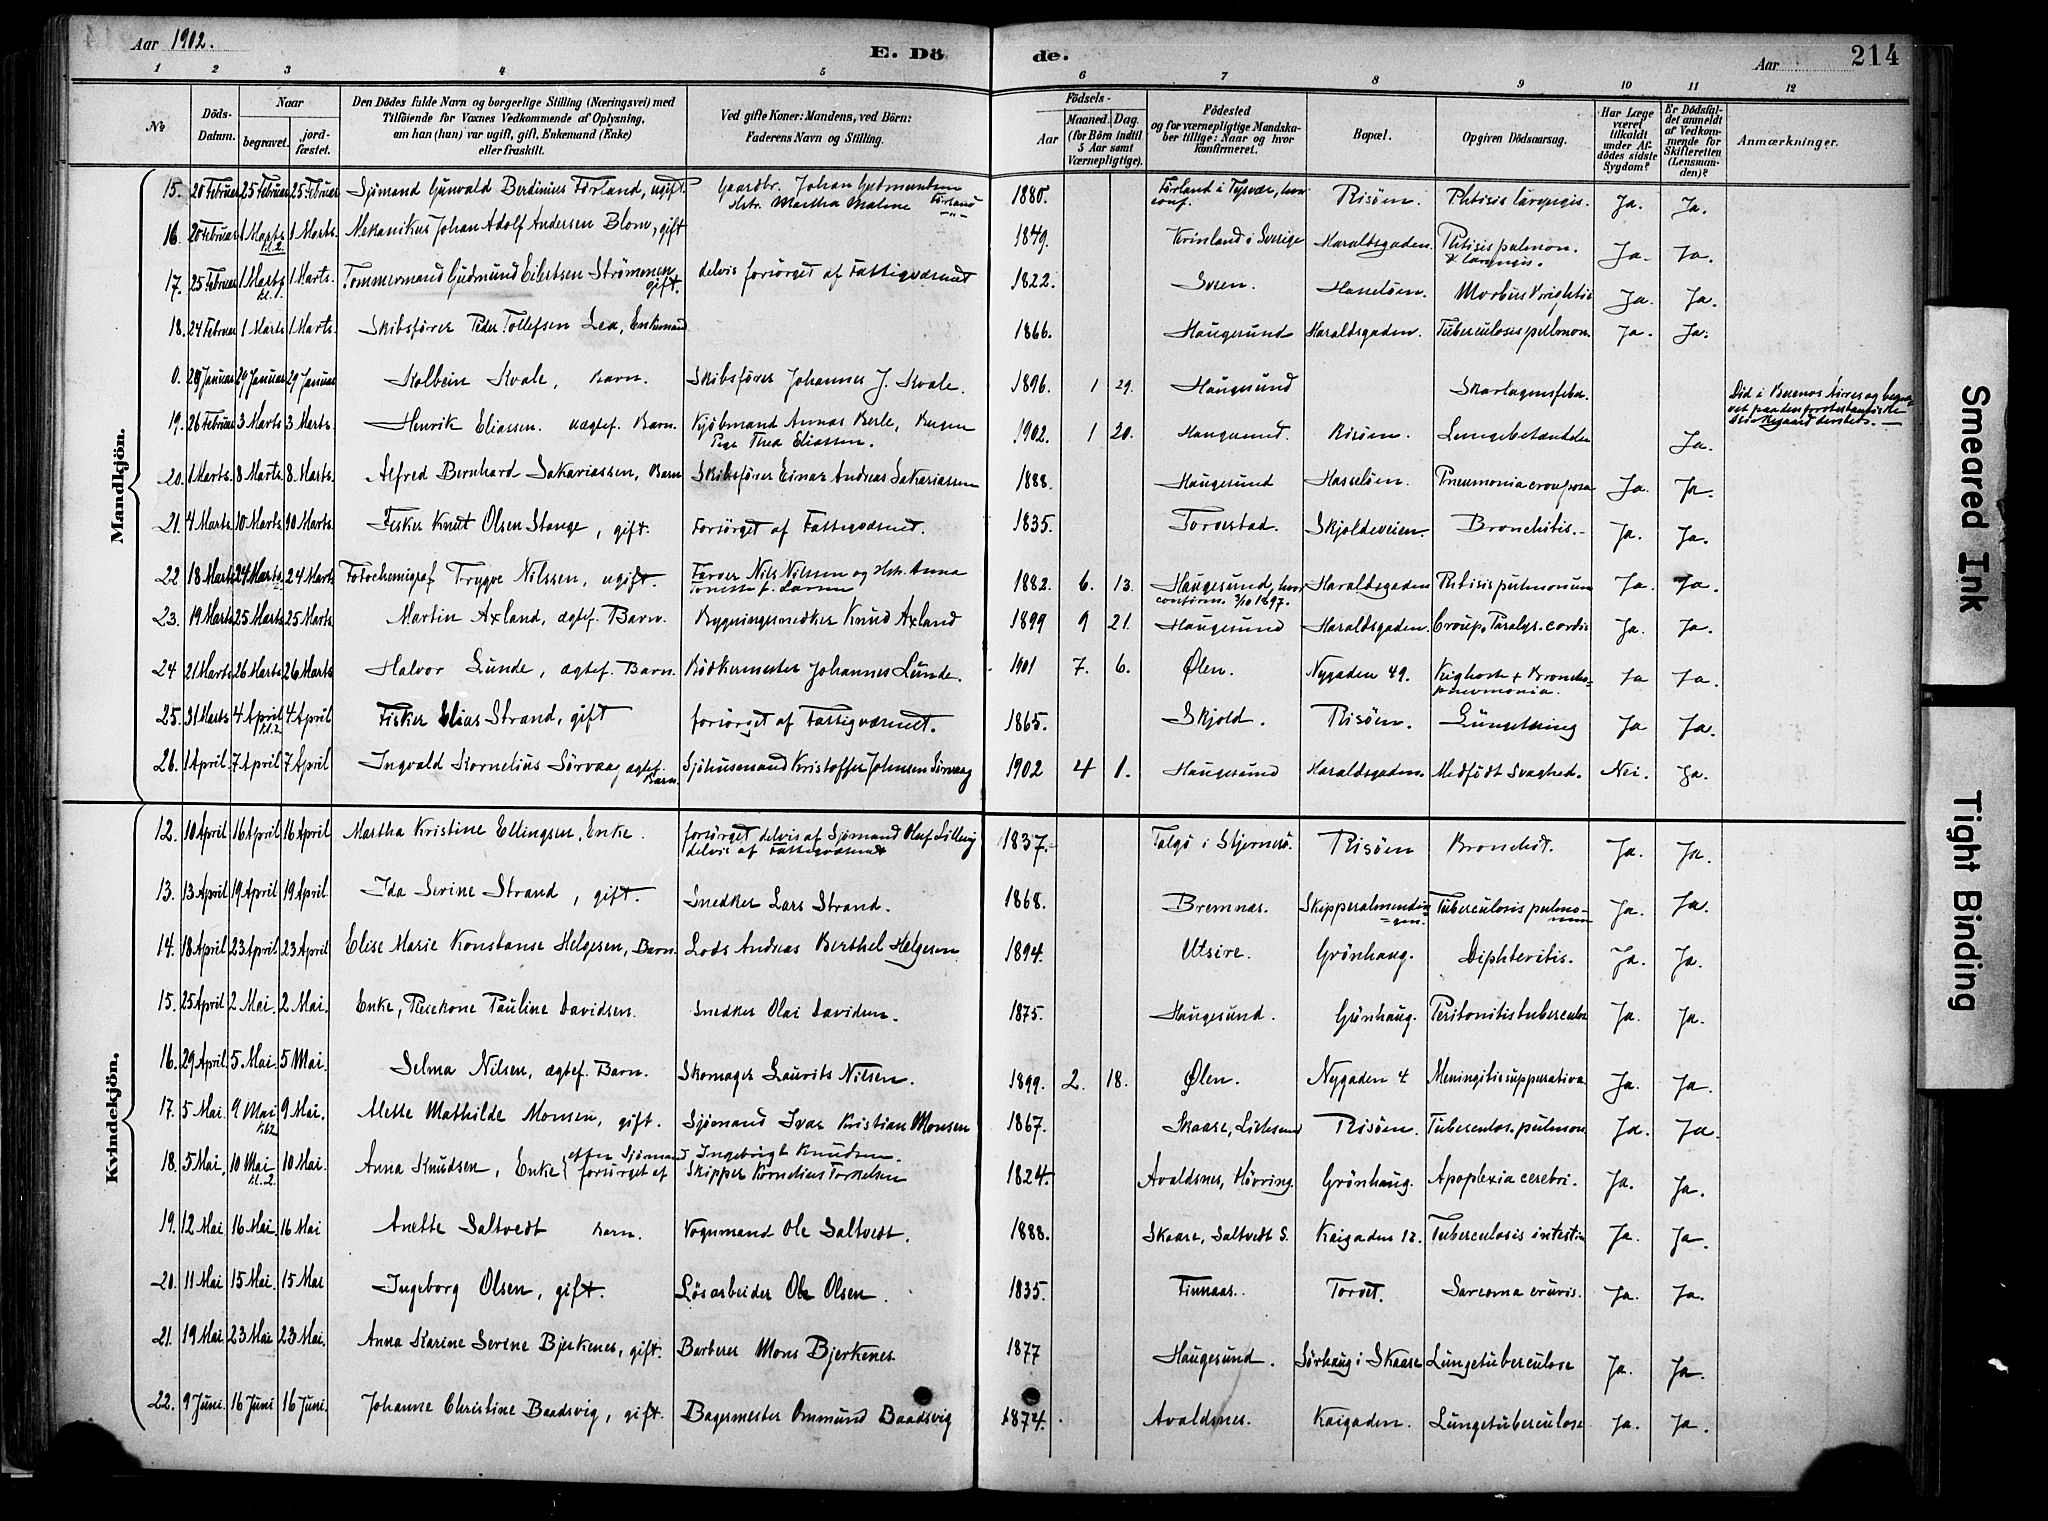 Aar 1902. E. Dö de. Aar 214
1 2 3 4 5 6 7 8 9 10 11 12
No
Döds-Datum.
Naar
begravet.
jord-fæstet.
Den Dödes fulde Navn og borgerlige Stilling (Næringsvei) med Tilföiende for Voxnes Vedkommende af Oplysning, om han (hun) var ugift, gift, Enkemand (Enke) eller fraskilt.
Ved gifte Koner: Mandens, ved Börn: Faderens Navn og Stilling.
Födsels-
Aar
Maaned. Dag.
(for Börn indtil 5 Aar samt Værnepligtige).
Födested og for værnepligtige Mandskaber tillige: Naar og hvor konfirmeret.
Bopæl.
Opgiven Dödsaarsag.
Har Læge været tilkaldt under Afdödes sidste Sygdom?
Er Dödsfaldet anmeldt af Vedkommende for Skifteretten (Lensmanden)?
Anmærkninger.
Mandkjön.
15. 20 Februar 25 Februar 25 Februar Sjömand Gunvald Berdinius Förland, ugift. Gaardbr. Johan Gudmundsen Förland Hstr. Martha Malene 1880. Förland i Tysvær, hvor conf. Risöen. Phtisis laryngis. Ja. Ja.
16. 20 Februar 1 Marts kl. 2. 1 Marts. Mekanikus Johan Adolf Andersen Blom, gift 1849. i Sverige Haraldsgaden. Phtisis pulmon. & laryngis. Ja. Ja.
17. 25 Februar 1 Marts kl. 1. 1 Marts. Tommermand Gudmund Eilertsen Strömmen, gift. delvis forsörget af Fattigvæsenet 1822. Sveen. Hasselöen. Morbus Brightii Ja. Ja.
18. 24 Februar 1 Marts 1 Marts. Skibsförer Peder Tollefsen Lea, Enkemand 1866. Haugesund Haraldsgaden. Tuberculosis pulmon. Ja. Ja.
0. 29 Januar 29 Januar 29 Januar Kolbein Kvale, Barn. Skibsförer Johannes J. Kvale. 1896. 1 29. Haugesund Skarlagensfeber. Död i Buenos Aires og begravet paa den protestantiske Kirkegaard dersteds.
19. 26 Februar 3 Marts 3 Marts. Henrik Eliassen. uægtef. Barn. Kjöbmand Annas Berle, Bergen Pige Thea Eliassen. 1902. 1 20. Haugesund. Risöen. Lungebetændelse Ja.
20. 1 Marts. 8 Marts. 8 Marts. Alfred Bernhard Sakariassen, Barn Skibsförer Einar Andreas Sakariassen 1888. Haugesund Hasselöen. Pneumonia crouposa Ja. Ja.
21. 4 Marts. 10 Marts. 10 Marts. Fisker Knut Olsen Stange, gift. Forsörget af Fattigvæsenet. 1835. Torvestad. Skjoldeveien. Bronchitis. Ja. Ja.
22 18 Marts 24 Marts. 24 Marts Fotochemigraf Trygve Nilssen, ugift. Farver Nils Nilssen og Hstr. Anna Tonette f. Larsen 1882. 6. 13. Haugesund, hvor confirm. 3/10 1897. Haraldsgaden Phtisis pulmonum Ja. Ja.
23. 19 Marts 25 Marts 25 Marts Martin Axland, ægtef. Barn. Bygningssnedker Knud Axland 1899 9 21. Haugesund Haraldsgaden. Croup, Paralys. cordis Ja. Ja.
24 21 Marts 26 Marts 26 Marts Halvor Lunde, ægtef. Barn. Bödkermester Johannes Lunde. 1901 7. 6. Ølen. Nygaden 49. Kighoste + Broncho-pneumonia. Ja Ja.
25. 31 Marts 4 April kl. 2 4 April Fisker Elias Strand, gift forsörget af Fattigvæsenet. 1865. Skjold. Risöen. Lungetæring Ja Ja.
26. 1 April 7 April 7 April Ingvald Kornelius Sörvaag ægtef. Barn. Sjöhusmand Kristoffer Johnsen Sörvaag 1902 4 1. Haugesund Haraldsgaden. Medfödt Svaghed. Nei. Ja.
Kvindekjön.
12. 10 April 16 April 16 April Martha Kristine Ellingsen, Enke. forsörget delvis af Sjömand Oluf Lillevig delvis af Fattigvæsenet 1837. Talgö i Stjernerö. Risöen Bronchit. Ja. Ja.
13. 13 April 19 April 19 April Ida Serine Strand, gift. Snedker Lars Strand. 1868. Bremnæs. Skipperalmendingen. Tuberculosis pulmonum Ja. Ja.
14. 18 April 23 April 23 April Elise Marie Konstanse Helgesen, Barn. Lods Andreas Berthel Helgesen 1894. Utsire. Grönhaug. Diphteritis. Ja. Ja.
15. 25 April 2 Mai. 2 Mai. Enke, Pauline Davidsen. Snedker Olai Davidsen. 1875. Haugesund. Grönhaug. Peritonitis tuberculos Ja. Ja.
16. 29 April 5. Mai. 5 Mai. Selma Nilsen, ægtef. Barn. Skomager Laurits Nilsen. 1899. 2. 18. Ølen. Nygaden 4 Meningitis supperativa Ja. Ja.
17. 5 Mai. 9 Mai kl. 2 9 Mai. Mette Mathilde Monsen, gift. Sjömand Ivar Kristian Monsen 1867. Skaare, Lillesund Risöen. Tuberculos. pulmon Ja. Ja.
18. 5 Mai. 10 Mai kl. 2. 10 Mai. Anna Knudsen, Enke efter Sjömand Ingebrigt Knudsen. forsörget af Skipper Kornelius Tornelsen 1824. Avaldsnes, Hövring. Grönhaug. Apoplexia cerebri. Ja. Ja.
19. 12 Mai 16 Mai. 16 Mai Anette Saltvedt Barn. Vognmand Ole Saltvedt. 1888. Skaare, Saltvedt S. Kaigaden 12. Tuberculosis intestin Ja. Ja.
20. 11 Mai 15 Mai. 15 Mai Ingeborg Olsen, gift. Lösarbeider Ole Olsen. 1835. Finnaas. Torvet. Sarcoma cruris. Ja. Ja.
21. 19 Mai 23 Mai 23 Mai. Anna Karine Serine Bjerkenes, gift. Barberer Mons Bjerkenes 1877 Haugesund. Sörhaug i Skaare Lungetuberculose Ja. Ja.
22. 9 Juni. 16 Juni 16 Juni. Johanne Christine Baadsvig, gift. Bagermester Ommund Baadsvig 1874. Avaldsnes. Kaigaden. Lungetuberculose Ja. Ja.
Smeared Ink
Tight Binding